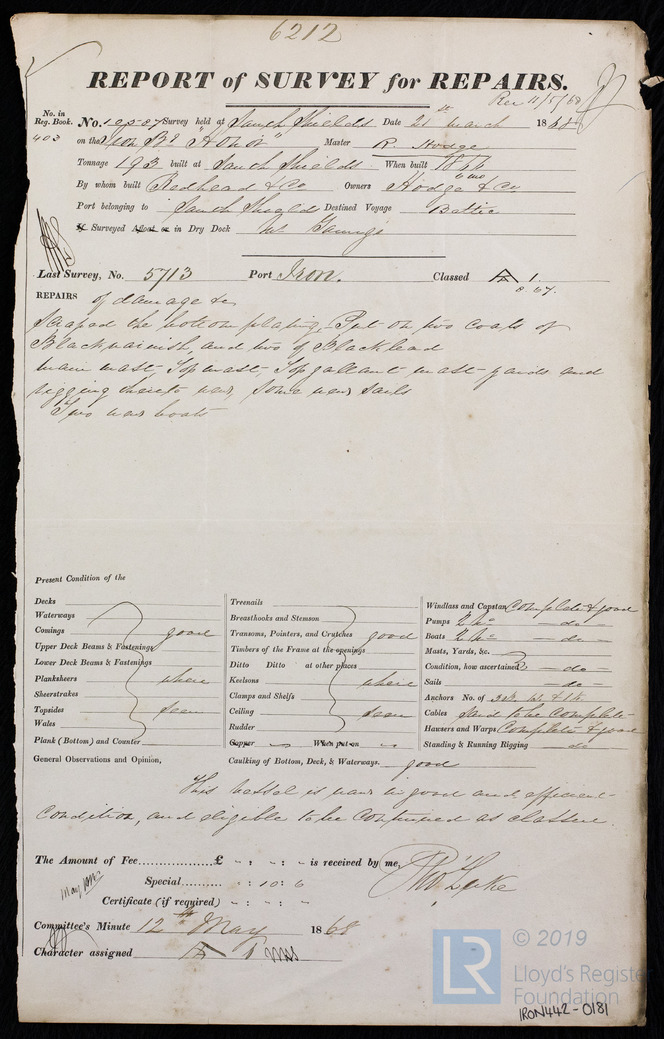 6212
REPORT of SURVEY for REPAIRS.
Rec 11/5/68
No. in Reg. Book.
403
No. Survey held at South Shields Date 21st March 1868
on the Iron Bk Master R. Hodge
Tonnage 193 built at South Shields When built 1866
6 mo
By whom built Redhead & Co Owners Hodge & Co
Port belonging to South Shields Destined Voyage Baltic
If Surveyed Afloat or in Dry Dock
Last Survey, No. 5713 Port Iron. Classed A 1.
8.67.
REPAIRS of damage &c
Scraped the bottom plating. Put on two coats of
Blackvarnish, and two of Blacklead
Main mast Topmast, Topgallant mast yards and
rigging thereto new, some new sails
Two new boats
Present Condition of the
Decks
Waterways
Comings good
Upper Deck Beams & Fastenings
Lower Deck Beams & Fastenings
Planksheers where
Sheerstrakes
Topsides seen
Wales
Plank (Bottom) and Counter
Treenails
Breasthooks and Stemson
Transoms, Pointers, and Crutches good
Timbers of the Frame at the openings
Ditto Ditto at other places
Keelsons where
Clamps and Shelfs
Ceiling seen
Rudder
Copper When put on
Caulking of Bottom, Deck, & Waterways. good
Windlass and Capstan Complete & good
Pumps 2 No - do -
Boats 2 No - do -
Masts, Yards, &c.
Condition, how ascertained - do -
Sails - do -
Anchors No. of
Cables Said to be Complete
Hawsers and Warps Complete & good
Standing & Running Rigging do
General Observations and Opinion,
This vessel is now in good and efficient
condition, and eligible to be continued as classed.
The Amount of Fee................£ - : - : - is received by me,
Special........... - : 10 : 6
Certificate (if required) - : - : -
Committee's Minute 12th May 1868
Character assigned A 1
© 2019
LR
Lloyd's Register
Foundation
IRON442-0181